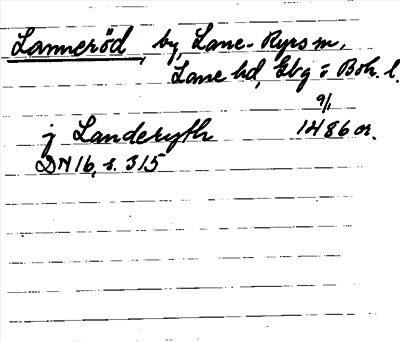 Lanneröd, by, Lane-Ryrs m,
Lane hd, Gbg o Boh. l.
9/1
j Landeryth 1486 or.
DN 16, s. 315